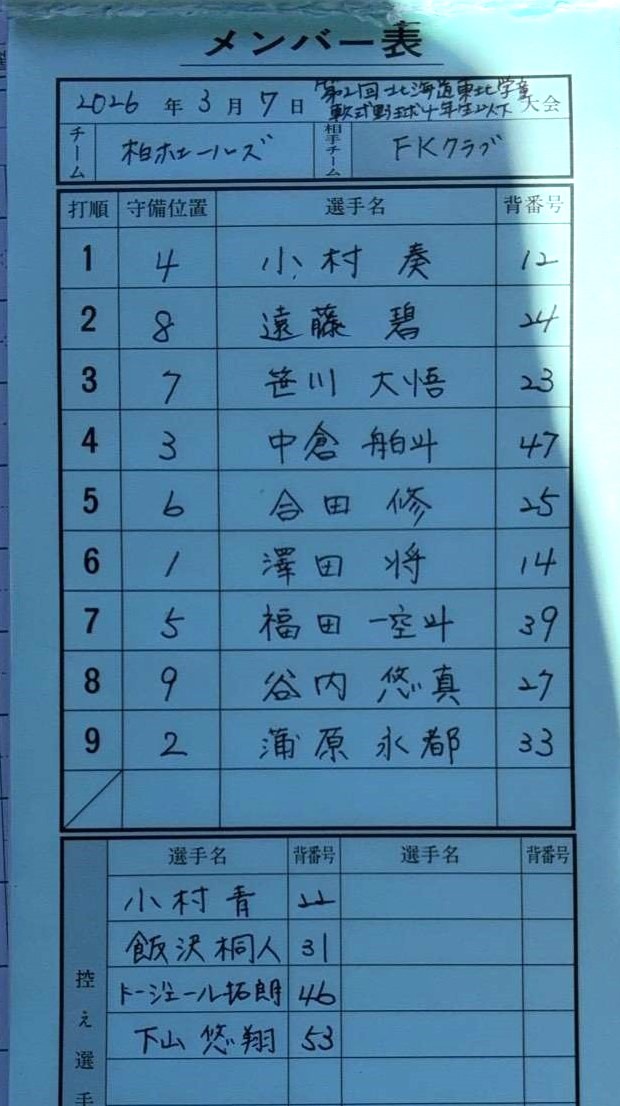 メンバー表
2026年3月7日 第21回北海道東北学童軟式野球4年生以下大会
チーム 柏ホエールズ 相手チーム FKクラブ
打順 守備位置 選手名 背番号
1 4 小村 奏 12
2 8 遠藤 碧 24
3 7 笹川 大悟 23
4 3 中倉 舶斗 47
5 6 合田 修 25
6 1 澤田 将 14
7 5 福田 一空斗 39
8 9 谷内 悠真 27
9 2 蒲原 永都 33
選手名 背番号 選手名 背番号
控え選手
小村 青 22
飯沢 桐人 31
ドージェール拓朗 46
下山 悠翔 53